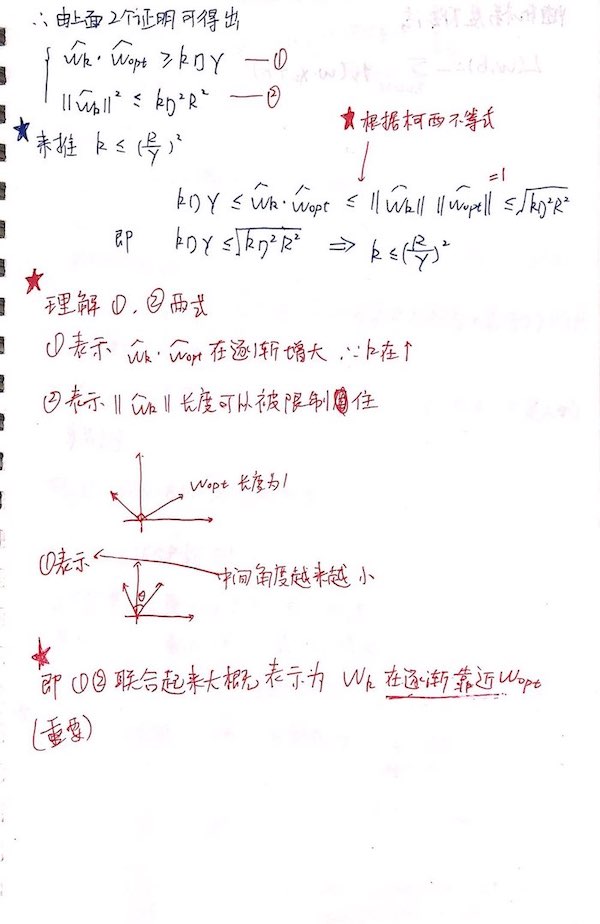 ∴ 由上面2个证明可得出
ŵk · ŵopt ≥ kηγ —— ①
||ŵk||² ≤ kη²R² —— ②
★ 来推 k ≤ (R/γ)²
★ 根据柯西不等式
kηγ ≤ ŵk · ŵopt ≤ ||ŵk|| ||ŵopt|| ≤ √kη²R²
=1
即 kηγ ≤ √kη²R² ⇒ k ≤ (R/γ)²
★
理解 ①, ② 两式
① 表示 ŵk · ŵopt 在逐渐增大 ∵ k在↑
② 表示 ||ŵk|| 长度可以被限制住
wopt 长度为1
① 表示
中间角度越来越小
θ
★
即 ①② 联合起来大概表示为 Wk 在逐渐靠近 Wopt
(重要)